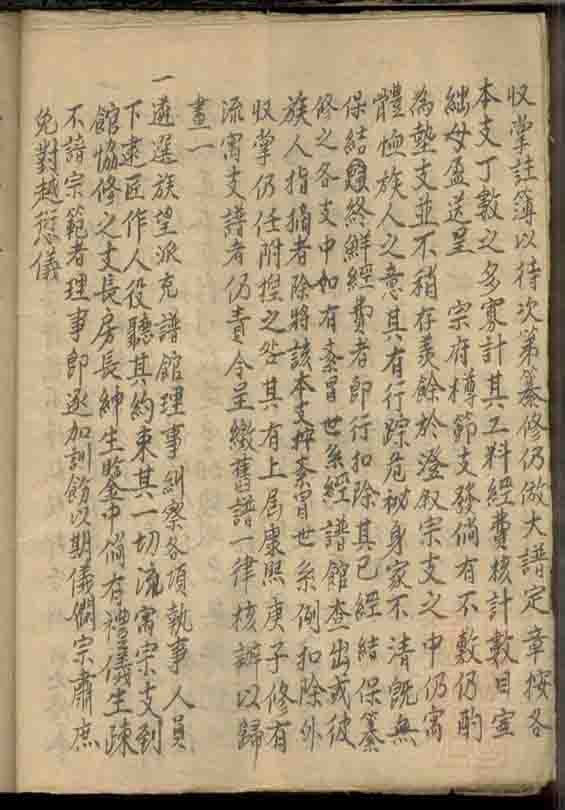 收掌註簿以待次第纂修仍倣大譜定章按各
本支丁數之多寡計其工料經費核計數目寔
絀毋盈送呈　宗府樽節支發倘有不敷仍酌
為墊支並不稍存羨餘於澄叙宗支之中仍寓
體恤族人之意其有行踪危秘身家不清既無
保結終鮮經費者即行扣除其已經結保纂
修之各支中如有紊冒世系經譜館查出或彼
族人指摘者除將該本支紊冒世系例扣除外
收掌仍任附捏之咎其有上屆康熙庚子修有
流寓支譜者仍責令呈繳舊譜一律核辦以歸
畫一
一遴選族望派充譜館理事糾察各項執事人員
下逮匠作人役聽其約束其一切流寓宗支到
館協修之丈長房長紳生中倘有禮儀生疎
不諳宗範者理事即逐加訓飭以期儀閑宗肅庶
免對越愆儀